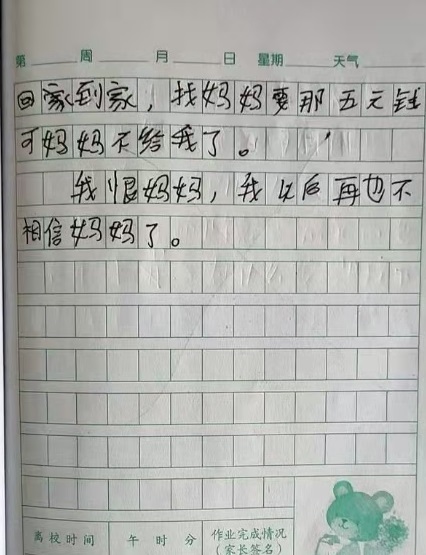 第 周 月 日 星期 天气
回家到家，找妈妈要那五元钱
可妈妈不给我了。
我恨妈妈，我以后再也不
相信妈妈了。
离校时间 午 时 分 作业完成情况
（家长签名）